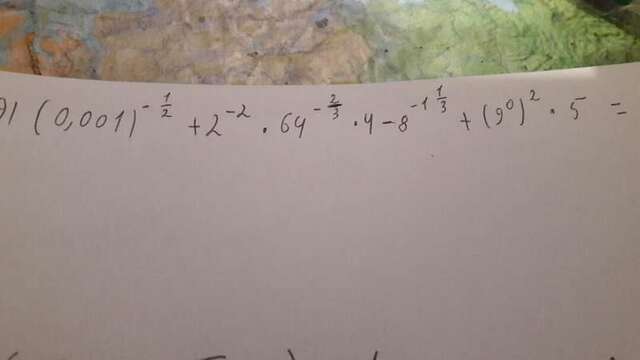 д) (0,001)^{-\frac{1}{2}} + 2^{-2} \cdot 64^{-\frac{2}{3}} \cdot 4 - 8^{-1\frac{1}{3}} + (9^0)^2 \cdot 5 =